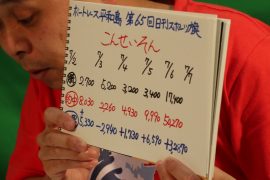 ボートレース平和島 第65回日刊スポーツ旗
こんせいそん
7/2 7/3 7/4 7/5 7/6 7/7
2,700 5,200 3,200 3,400 17,400
8,030 2260 4,930 9,990 50,270
+5,330 -2,940 +1,730 +6,590 +32,870